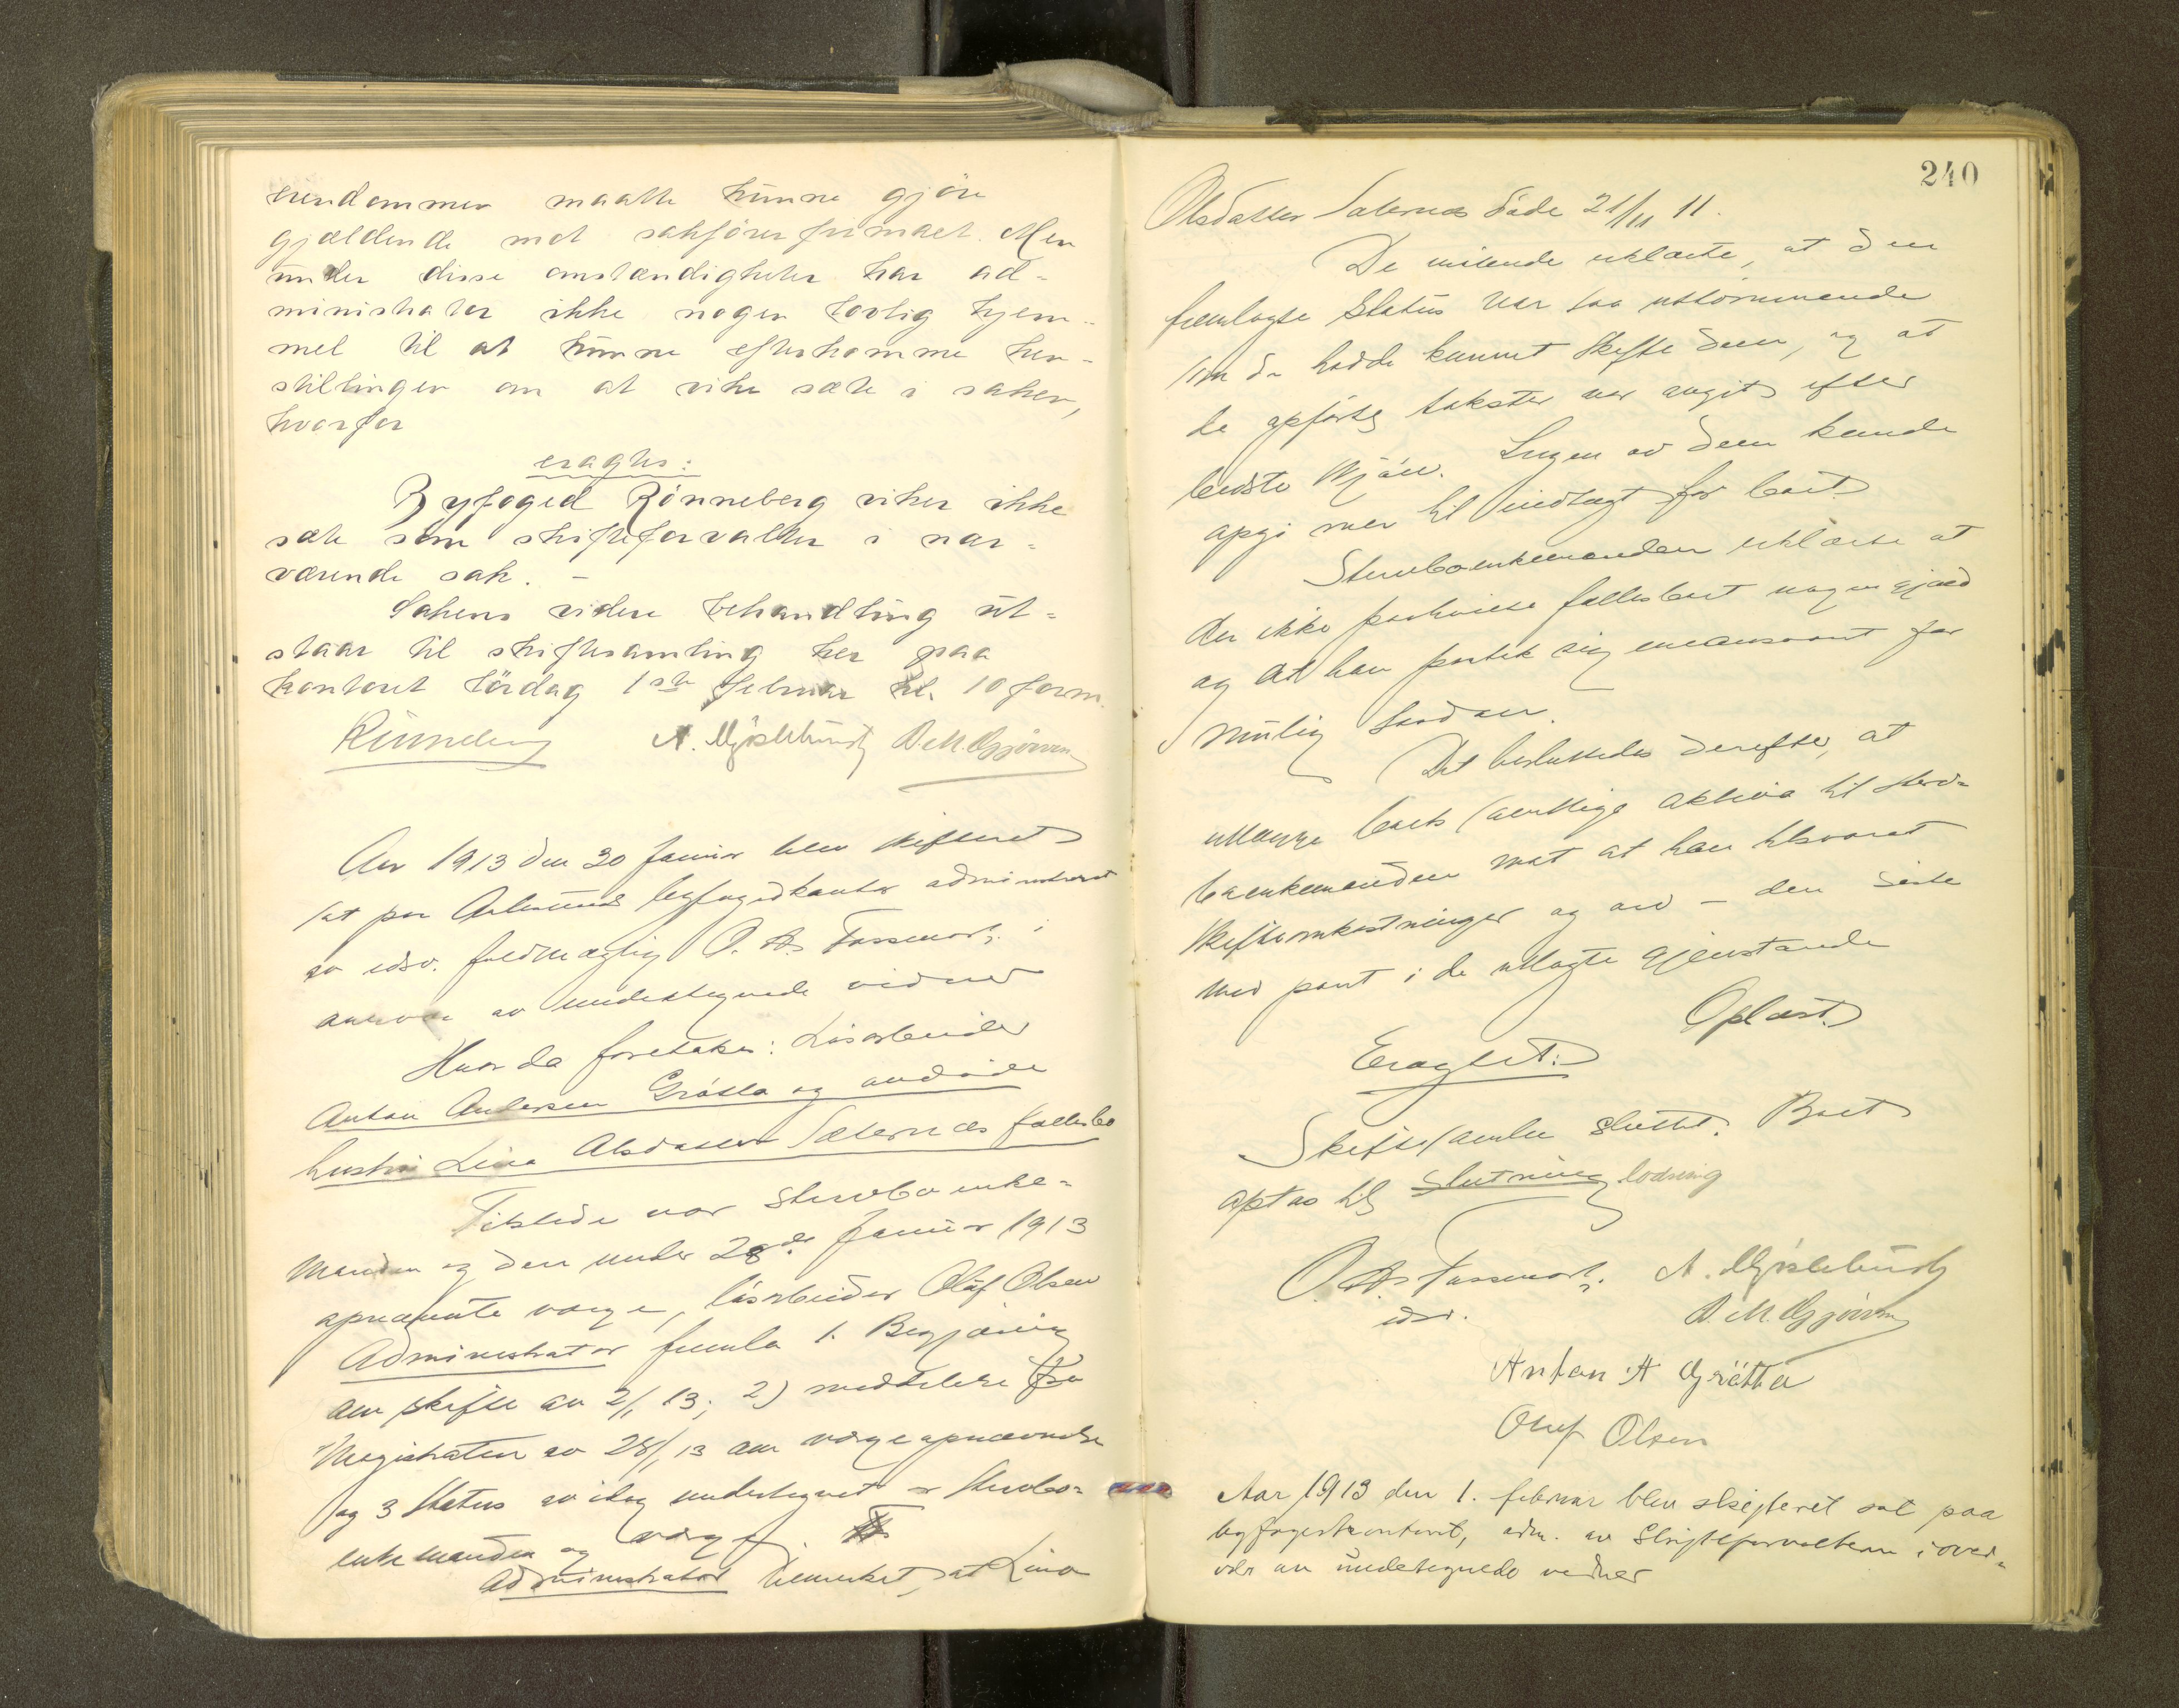 eiendommen maatte kunne gjöre
gjældende mot sakförerfirmaet. Men
under disse omstændigheter har ad-
ministrator ikke nogen lovlig hjem-
mel til at kunne efterkomme hen-
stillingen om at vike sæte i saken,
hvorfor
eragtes:
Byfoged Rönneberg viker ikke
sæte som skifteforvalter i nær-
værende sak. –
Sakens videre behandling ut-
staar til skiftesamling her paa
kontoret lördag 1ste februar kl. 10 form.
Rönneberg A. Mjöslebust D. M. Gjörven
Aar 1913 den 30 januar blev skifteret
sat paa Aalesunds byfogedkontor administreret
av edsv. fuldmægtig O. As. i
nærvær av undertegnede vidner
Hvor da foretokes: Lösarbeider
Anton Andersen Gråtta og avdöde
hustru Lina Olsdatter Sæternes fællesbo
Tilstede var stervboenke-
manden og den under 28de januar 1913
opnævnte verge, lösarbeider Oluf Olsen
Administrator fremla 1. Begjæring
om skifte av 2/1 13; 2) meddelelse fra
Magistraten av 28/1 13 om vergeopnævnelse
og 3 Status av idag undertegnet av stervbo-
enkemanden og verge.
Administrator bemerket, at Lina
240
Olsdatter Sæternes döde 21/11 11.
De mötende erklærte, at den
fremlagte Status var saa uttömmende
som de hadde kunnet skaffe den, og at
de opförte takster var angit efter
bedste skjön. Ingen av dem kunde
opgi mer til indtægt for boet.
Stervboenkemanden erklærte at
der ikke paahvilte fællesboet nogen gjæld
og at han paatok sig eneansvaret for
mulig saadan.
Det besluttedes derefter, at
utlægge boets samtlige aktiva til sterv-
boenkemanden mot at han tilsvaret
skifteomkostninger og arv – den siste
med pant i de utlagte gjenstande
Oplæst.
Eragtet:
Skiftesamlen sluttet. Boet
optas til slutning lodning
O. As. A. Mjöslebust
edsv. D. M. Gjörven
Anton A Grötta
Oluf Olsen
Aar 1913 den 1. februar blev skifteret sat paa
byfogedkontoret, adm. av skifteforvalteren i over-
vær av undertegnede vidner